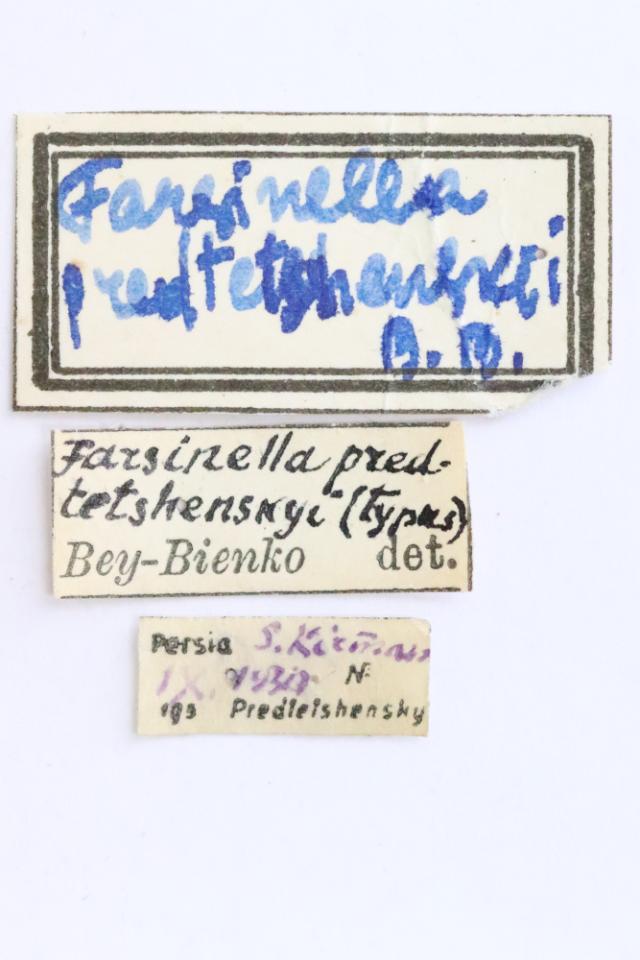 Farsinella
predtetshenskii
B.B.
Farsinella pred-
tetshenskyi (typus)
Bey-Bienko det.
Persia S. Kirman
IX. N
193 Predtetshensky